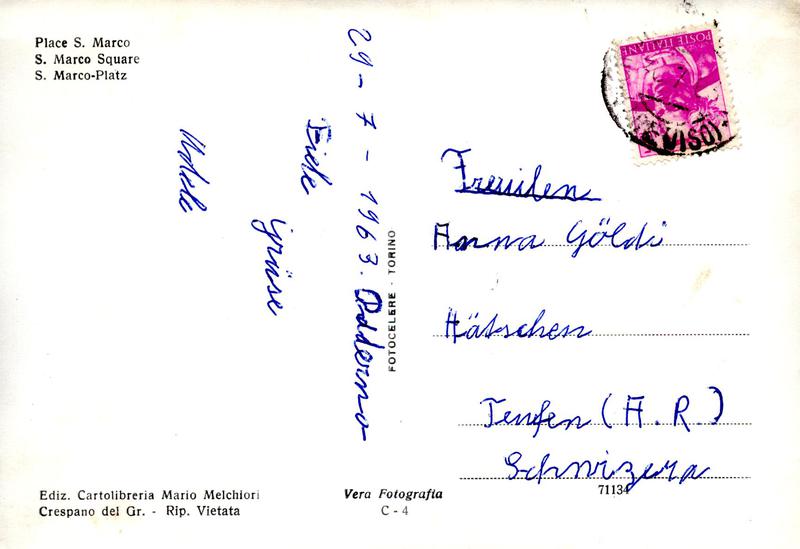 Place S. Marco
S. Marco Square
S. Marco-Platz
29 - 7 - 1963. Padderno
Fiele
grüse
Adele
FOTOCELERE - TORINO
POSTE ITALIANE
VISO)
Freuilen
Anna Göldi
Hätschen
Teufen (A.R.)
Schwizera
Ediz. Cartolibreria Mario Melchiori
Crespano del Gr. - Rip. Vietata
Vera Fotografia
C - 4
71134